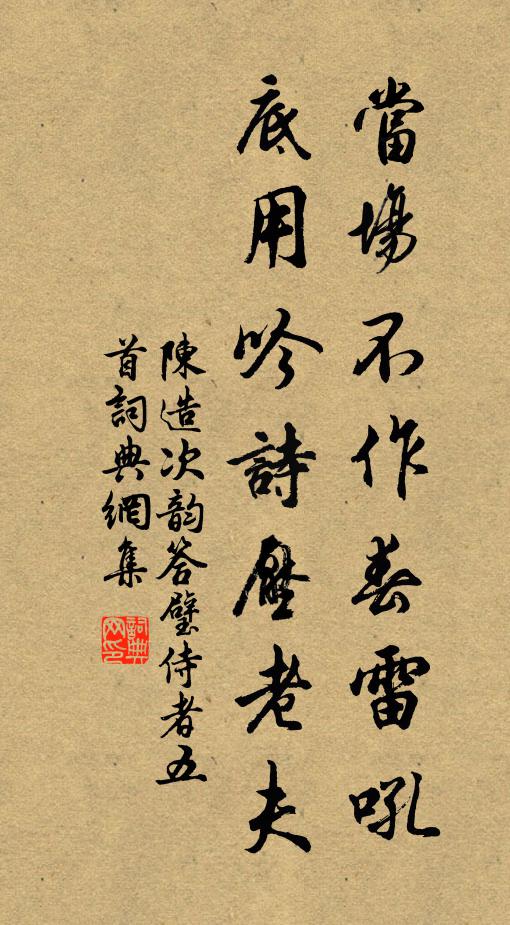 當場不作春雷吼
底用吟詩壓老夫
陳造次韵答璧侍者五
首詞典網集
詞典
网印